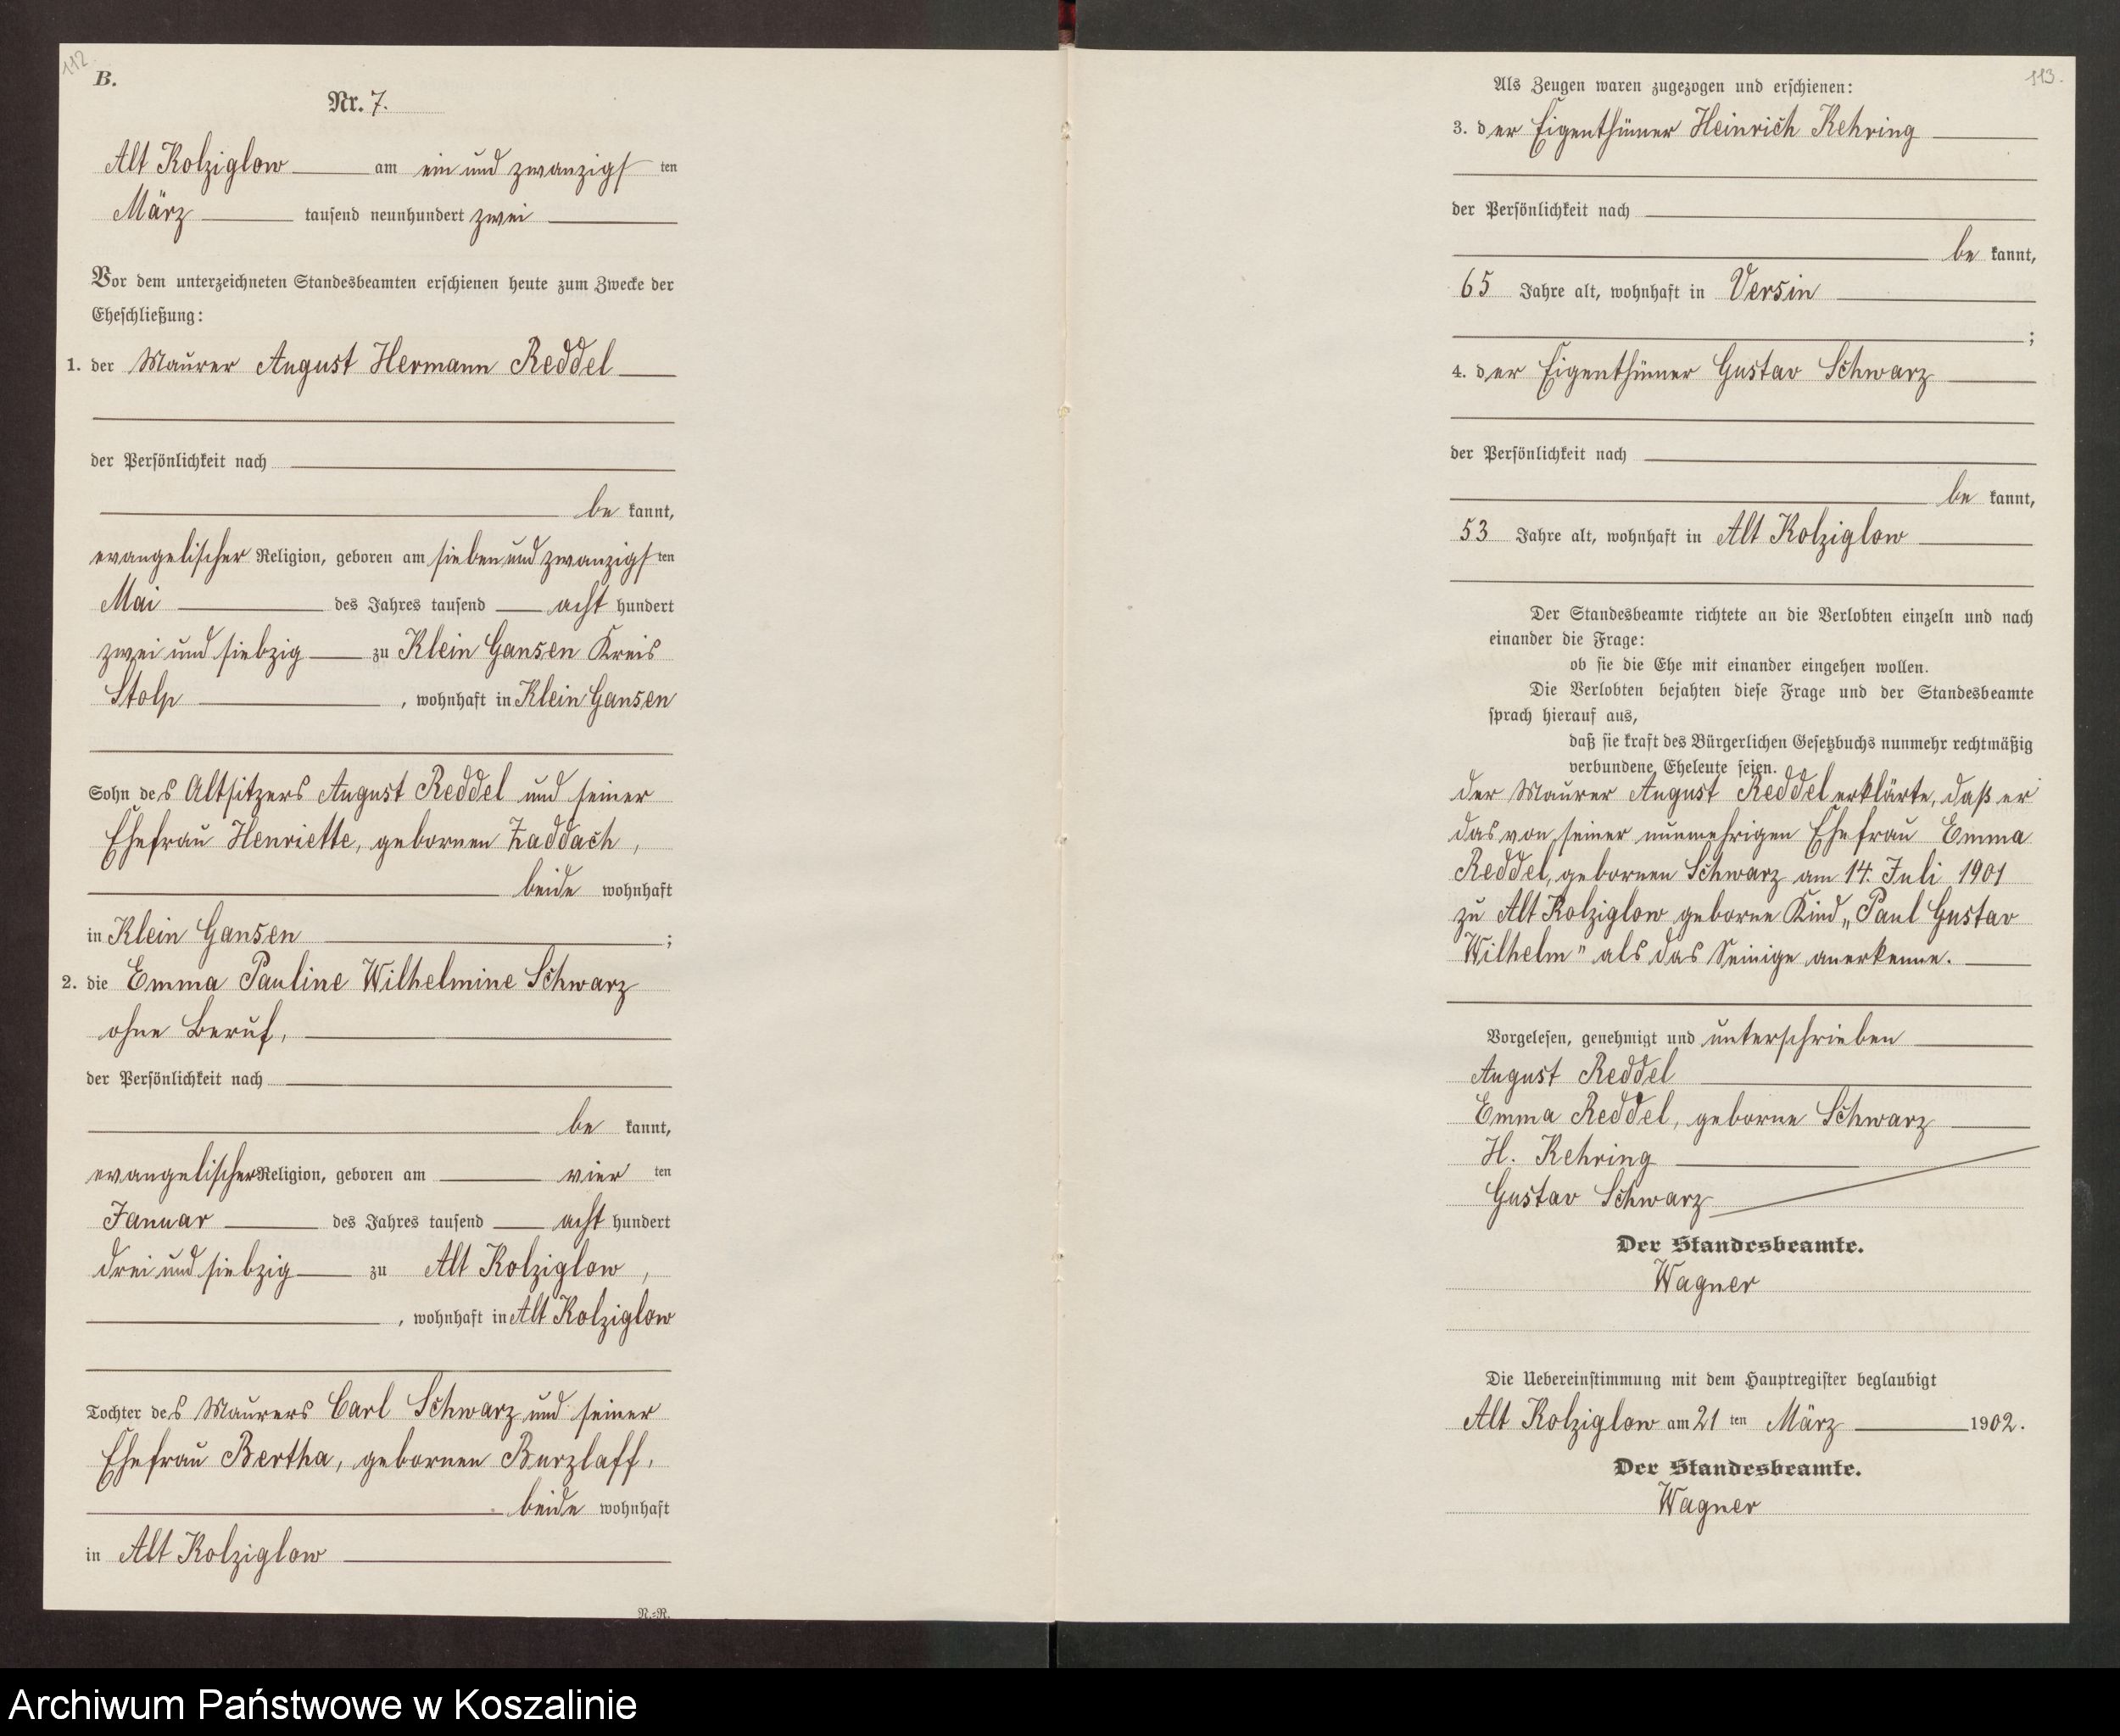 112
B.
Nr. 7.
Alt Kolziglow am ein und zwanzigsten
März tausend neunhundert zwei
Vor dem unterzeichneten Standesbeamten erschienen heute zum Zwecke der
Eheschließung:
1. der Maurer August Hermann Reddel
der Persönlichkeit nach
be kannt,
evangelischer Religion, geboren am sieben und zwanzigsten
Mai des Jahres tausend acht hundert
zwei und siebzig zu Klein Gansen Kreis
Stolp, wohnhaft in Klein Gansen
Sohn des Altsitzers August Reddel und seiner
Ehefrau Henriette, gebornen Zaddach,
beide wohnhaft
in Klein Gansen;
2. die Emma Pauline Wilhelmine Schwarz
ohne Beruf,
der Persönlichkeit nach
be kannt,
evangelischer Religion, geboren am vier ten
Januar des Jahres tausend acht hundert
drei und siebzig zu Alt Kolziglow,
, wohnhaft in Alt Kolziglow
Tochter des Maurers Carl Schwarz und seiner
Ehefrau Bertha, gebornen Burzlaff,
beide wohnhaft
in Alt Kolziglow
N.=N.
113.
Als Zeugen waren zugezogen und erschienen:
3. der Eigenthümer Heinrich Rehring
der Persönlichkeit nach
be kannt,
65 Jahre alt, wohnhaft in Versin
;
4. der Eigenthümer Gustav Schwarz
der Persönlichkeit nach
be kannt,
53 Jahre alt, wohnhaft in Alt Kolziglow
Der Standesbeamte richtete an die Verlobten einzeln und nach
einander die Frage:
ob sie die Ehe mit einander eingehen wollen.
Die Verlobten bejahten diese Frage und der Standesbeamte
sprach hierauf aus,
daß sie kraft des Bürgerlichen Gesetzbuchs nunmehr rechtmäßig
verbundene Eheleute seien.
Der Maurer August Reddel erklärte, daß er
das von seiner nunmehrigen Ehefrau Emma
Reddel, gebornen Schwarz am 14. Juli 1901
zu Alt Kolziglow geborne Kind „Paul Gustav
Wilhelm" als das Seinige anerkenne.
Vorgelesen, genehmigt und unterschrieben
August Reddel
Emma Reddel, geborne Schwarz
H. Rehring
Gustav Schwarz
Der Standesbeamte.
Wagner
Die Uebereinstimmung mit dem Hauptregister beglaubigt
Alt Kolziglow am 21 ten März 1902.
Der Standesbeamte.
Wagner
Archiwum Państwowe w Koszalinie